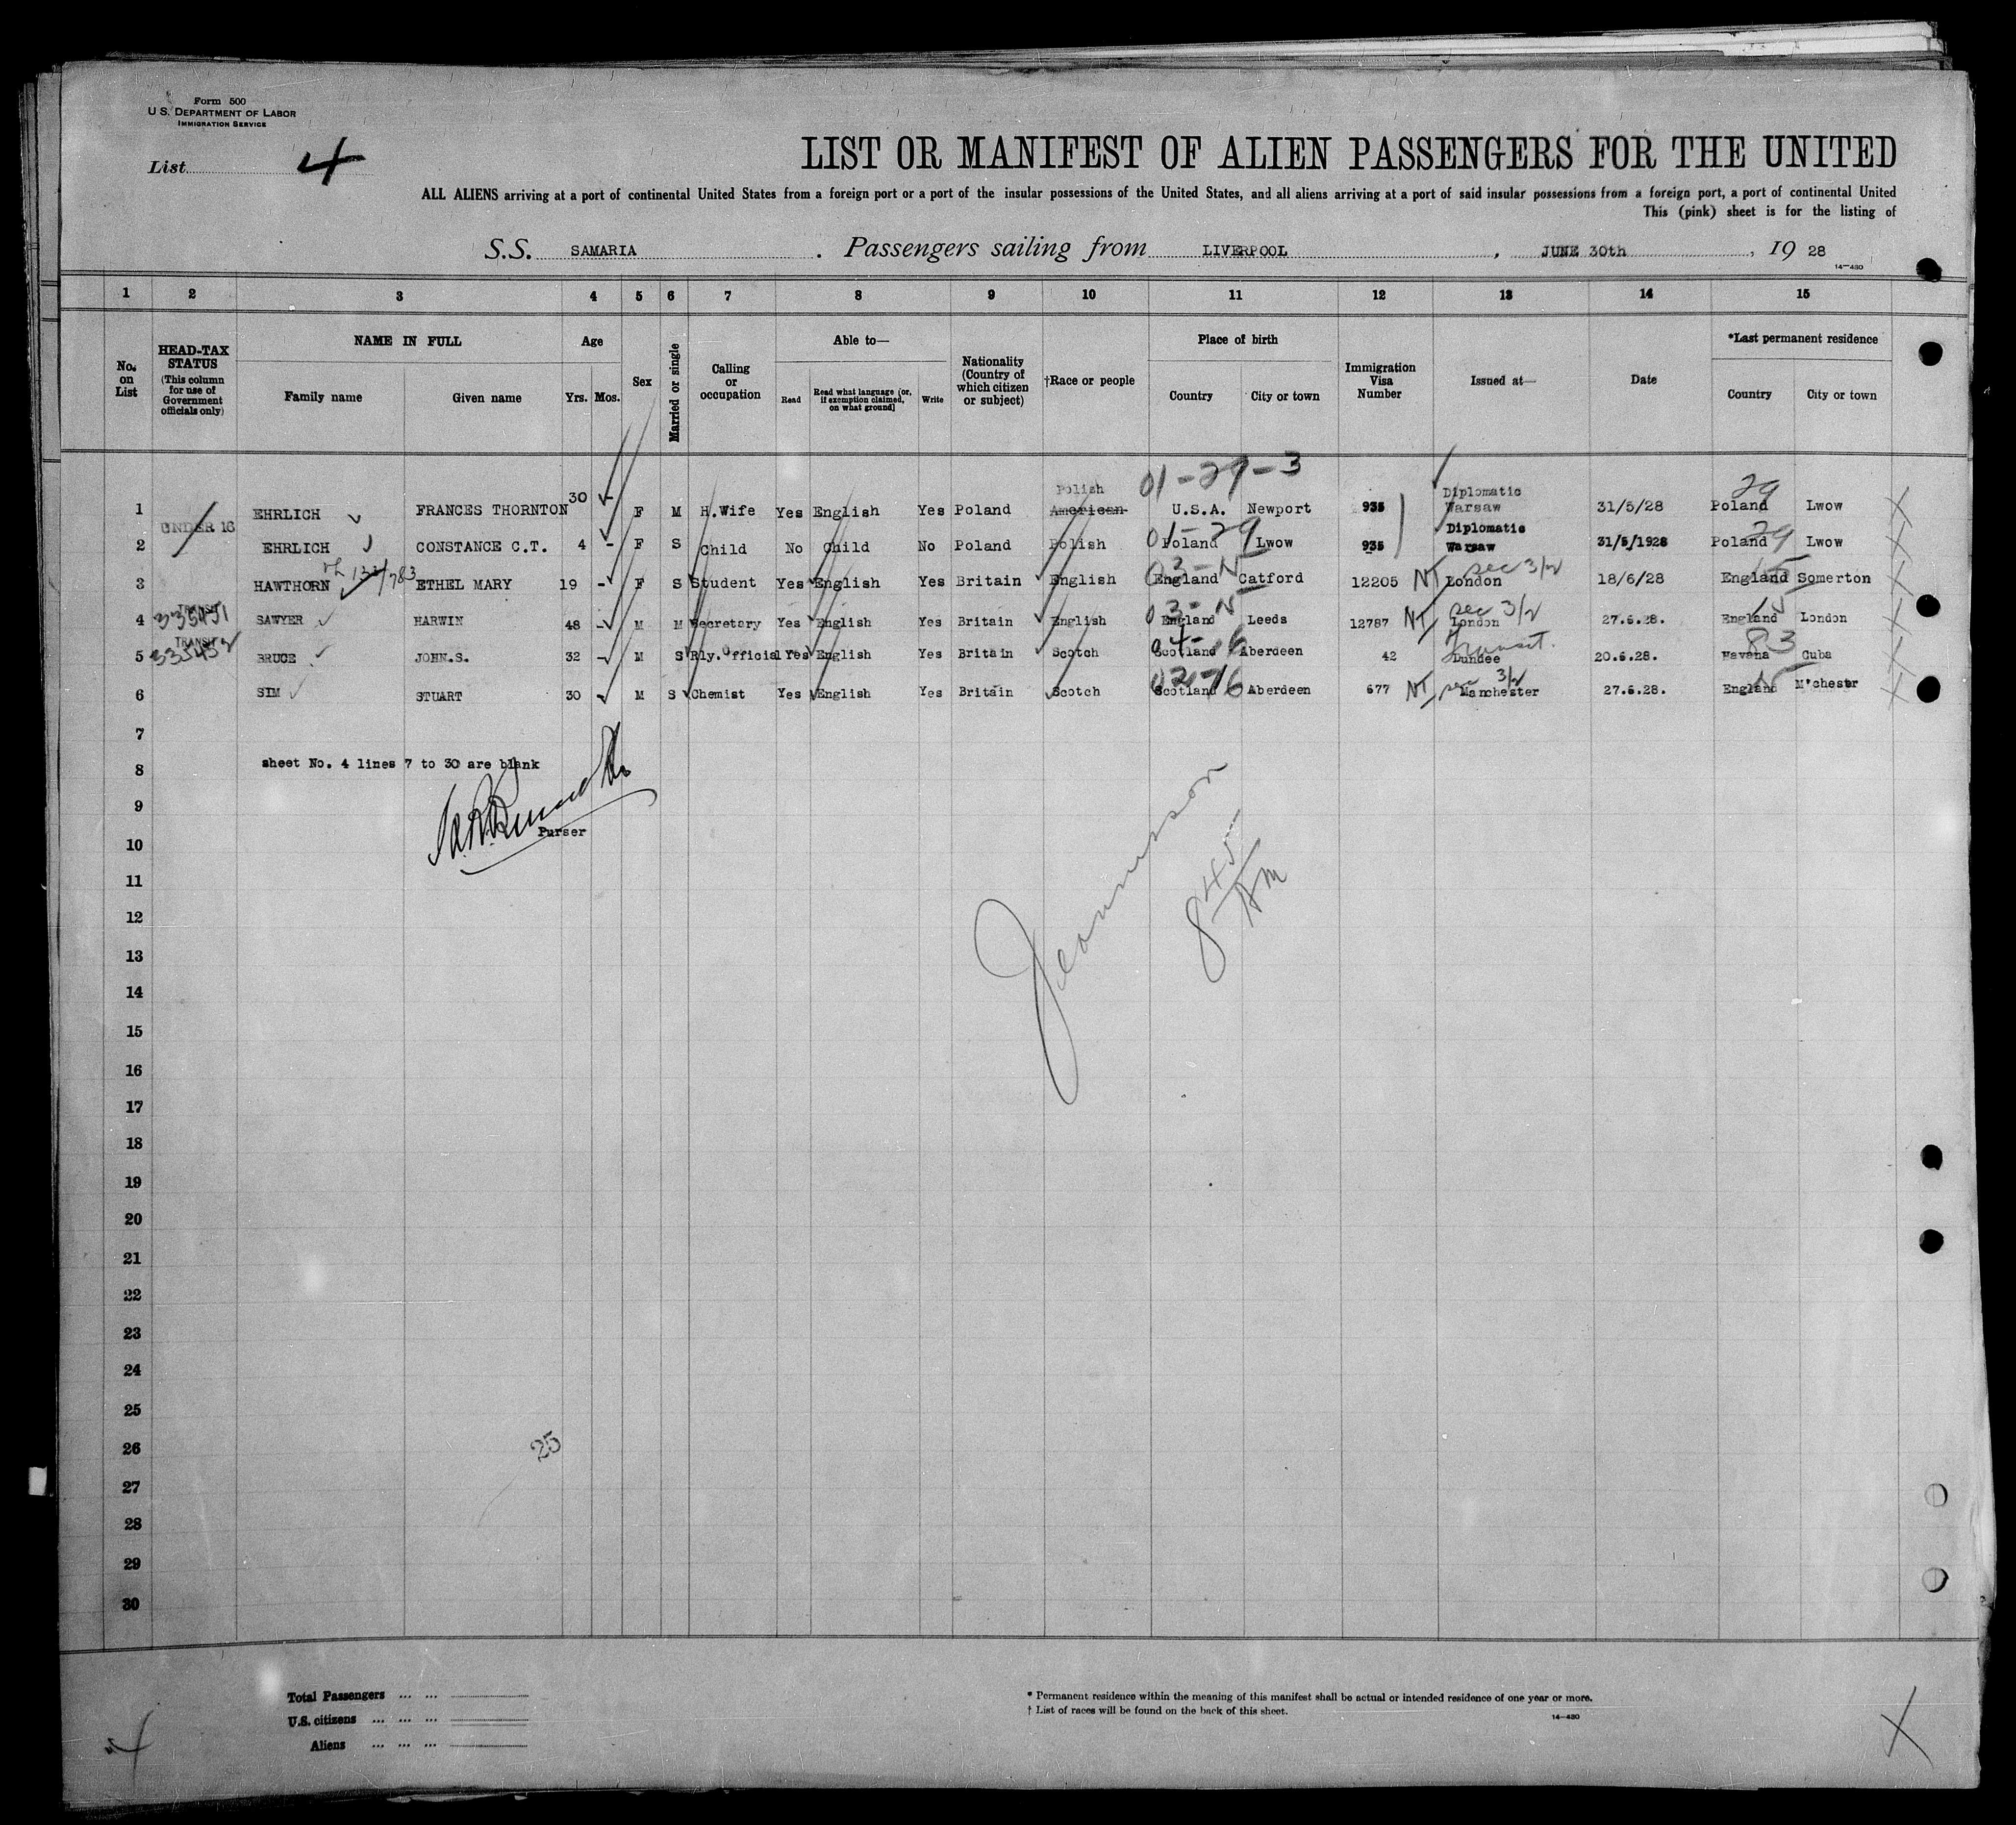 Form 500
U. S. DEPARTMENT OF LABOR
IMMIGRATION SERVICE
List 4
LIST OR MANIFEST OF ALIEN PASSENGERS FOR THE UNITED
ALL ALIENS arriving at a port of continental United States from a foreign port or a port of the insular possessions of the United States, and all aliens arriving at a port of said insular possessions from a foreign port, a port of continental United
This (pink) sheet is for the listing of
S.S. SAMARIA . Passengers sailing from LIVERPOOL , JUNE 30th , 19 28
14-430
1 2 3 4 5 6 7 8 9 10 11 12 13 14 15
No. on List
HEAD-TAX STATUS (This column for use of Government officials only)
NAME IN FULL
Family name Given name
Age
Yrs. Mos.
Sex
Married or single
Calling or occupation
Able to—
Read
Read what language [or, if exemption claimed, on what ground]
Write
Nationality (Country of which citizen or subject)
†Race or people
Place of birth
Country City or town
Immigration Visa Number
Issued at—
Date
*Last permanent residence
Country City or town
01-29-3 29
1 EHRLICH FRANCES THORNTON 30 - F M H.Wife Yes English Yes Poland Polish American U.S.A. Newport 935 Diplomatic Warsaw 31/5/28 Poland Lwow
UNDER 16 01-29 29
2 EHRLICH CONSTANCE C.T. 4 - F S Child No Child No Poland Polish Poland Lwow 935 Diplomatic Warsaw 31/5/1928 Poland Lwow
03-N 15
3 HAWTHORN 783 ETHEL MARY 19 - F S Student Yes English Yes Britain English England Catford 12205 NT London sec 3/2 18/6/28 England Somerton
TRANSIT 335451 03-N
4 SAWYER HARWIN 48 - M M Secretary Yes English Yes Britain English England Leeds 12787 NT sec 3/2 London 27.6.28. England London
TRANSIT 335452 04-16 83
5 BRUCE JOHN.S. 32 - M S Rly.Official Yes English Yes Britain Scotch Scotland Aberdeen 42 Transit. Dundee 20.6.28. Havana Cuba
02-16
6 SIM STUART 30 - M S Chemist Yes English Yes Britain Scotch Scotland Aberdeen 677 NT sec 3/2 Manchester 27.6.28. England M'chester
7
8 sheet No. 4 lines 7 to 30 are blank
9
Purser
10
11
12
8 45 AM
13
14
15
16
17
18
19
20
21
22
23
24
25
26 25
27
28
29
30
Total Passengers ... ...
U.S. citizens ... ... ...
Aliens ... ... ...
* Permanent residence within the meaning of this manifest shall be actual or intended residence of one year or more.
† List of races will be found on the back of this sheet.
14-430